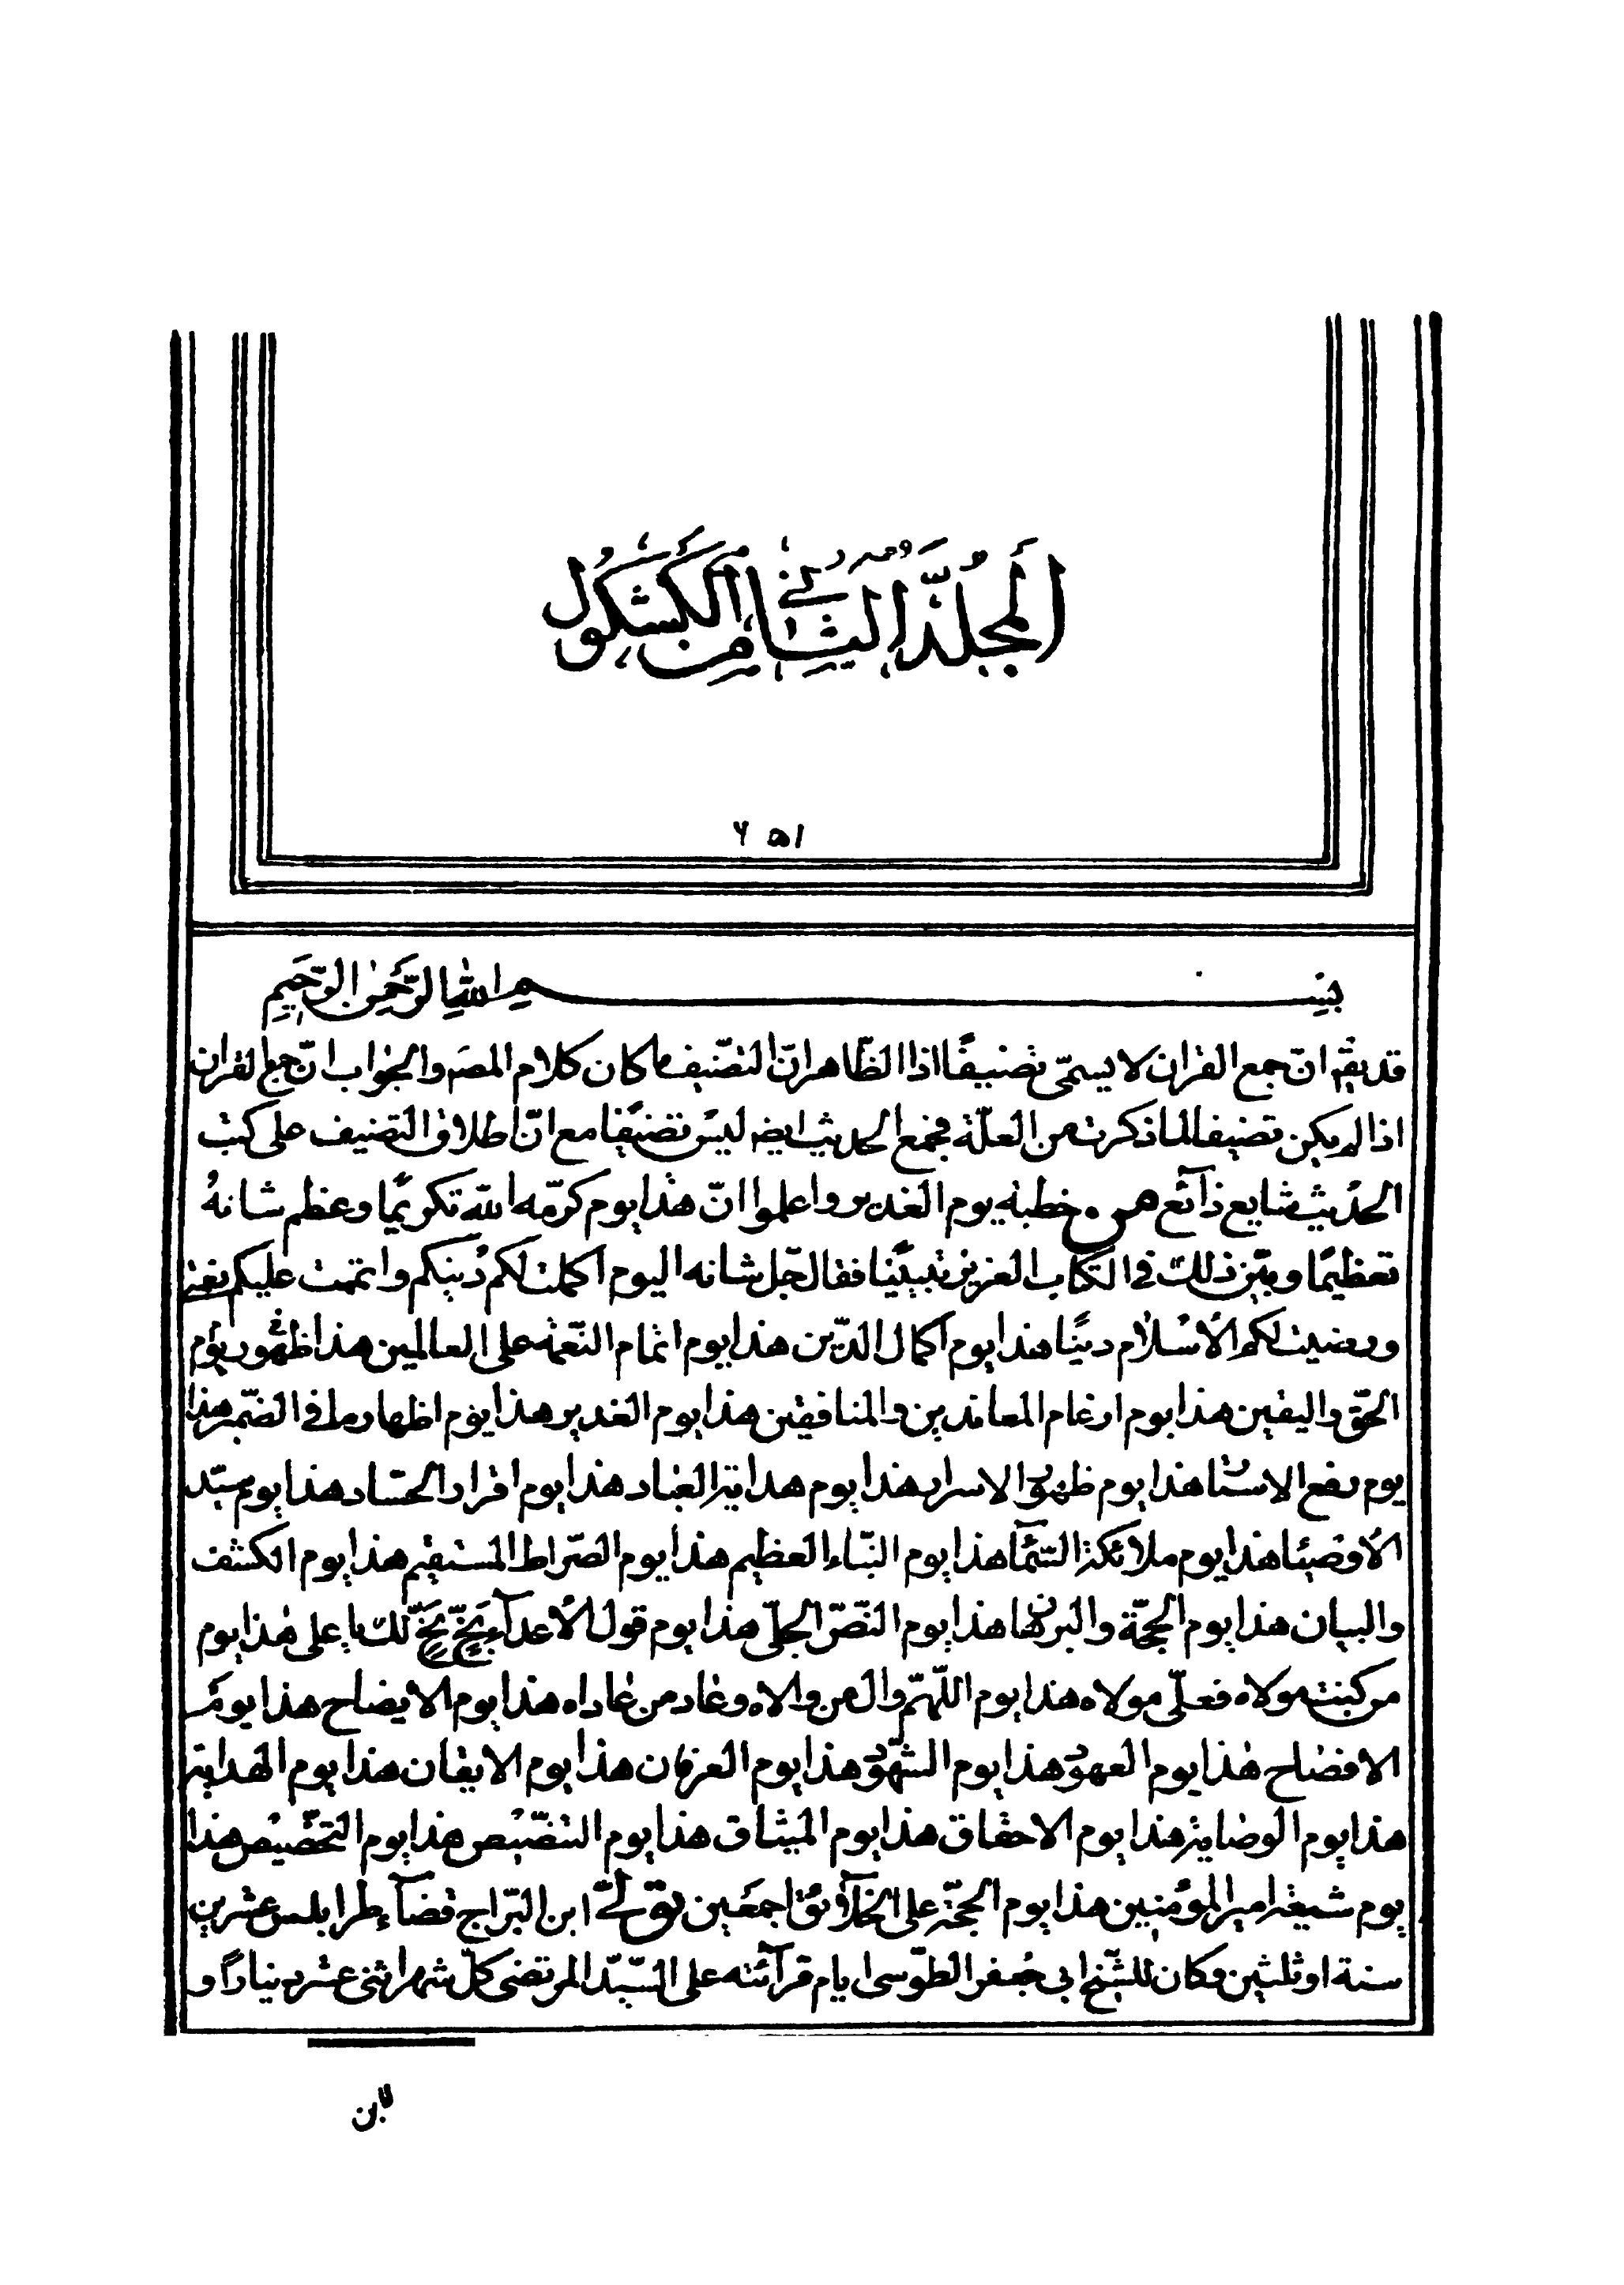 المجلد الثاني من الكشكول
١٥٢
بسم الله الرحمن الرحيم
قد يقٓه انّ جمع القران لا يسمّى تصنيفًا اذ الظّاهر انّ التصنيف ما كان كلام المصَه والجواب انّ جمع القران
اذا لم يكن تصنيفا لما ذكرت من العلّة فجمع الحديث ايضٓه ليس تصنيفًا مع انّ اطلاق التصنيف على كتب
الحديث شايع ذائع من خطبة يوم الغدير واعلموا انّ هذا يوم كرّمه الله تكريمًا وعظم شانهُ
تعظيمًا وبيّن ذلك في الكتاب العزيز تبيينًا فقال جلّ شانه اليوم اكملت لكم دينكم واتممت عليكم نعمتي
ورضيت لكم الاسلام دينًا هذا يوم اكمال الدّين هذا يوم اتمام النّعمة على العالمين هذا ظهور يوم
الحقّ واليقين هذا يوم ارغام المعاندين والمنافقين هذا يوم الغدير هذا يوم اظهار ما في الضّمير هذا
يوم رفع الاستار هذا يوم ظهور الاسرار هذا يوم هداية العباد هذا يوم اقرار الحسّاد هذا يوم سيّد
الأوصيا هذا يوم ملائكة السّمآ هذا يوم النّباء العظيم هذا يوم الصّراط المستقيم هذا يوم الكشف
والبيان هذا يوم الحجّة والبرهان هذا يوم النّصّ الجلّى هذا يوم قول الأعدآء بَخٍّ بَخٍّ لك يا على هذا يوم
من كنت مولاه فعلىّ مولاه هذا يوم اللّهمّ وال من والاه وعاد من عاداه هذا يوم الايضاح هذا يوم
الافضاح هذا يوم العهود هذا يوم الشّهود هذا يوم العرفان هذا يوم الايقان هذا يوم الهداية
هذا يوم الوصاية هذا يوم الاحقاق هذا يوم الميثاق هذا يوم التنصّيص هذا يوم التخصّيص هذا
يوم شيعة امير المؤمنين هذا يوم الحجّة على الخلآئق اجمعين تولّى ابن البرّاج قضآء طرابلس عشرين
سنة او ثلثين وكان للشّيخ ابى جعفر الطّوسى ايام قرآئته على السّيّد المرتضى كلّ شهر اثنى عشر دينارًا و
لابن